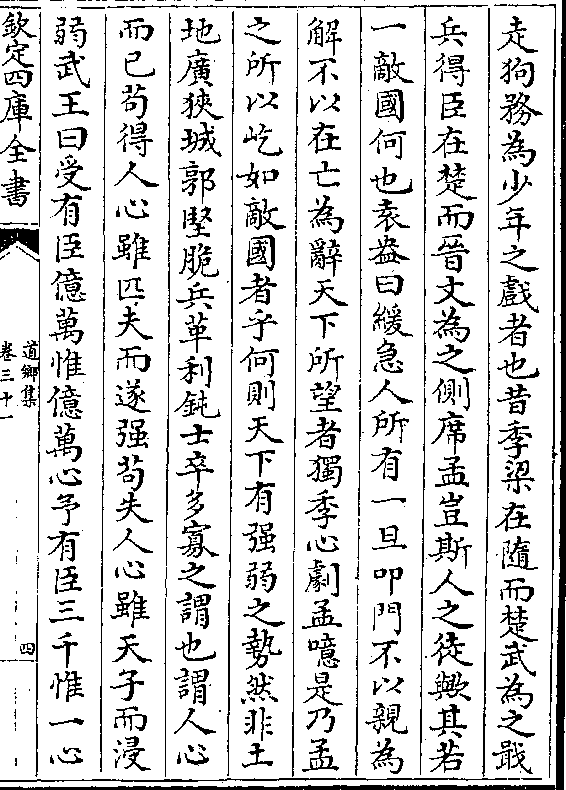 走狗務為少年之戲者也昔季梁在隨而楚武為之戢
兵得臣在楚而晉文為之側席孟豈斯人之徒歟其若
一敵國何也袁盎曰緩急人所有一旦叩門不以親為
解不以在亡為辭天下所望者獨季心劇孟噫是乃孟
之所以屹如敵國者乎何則天下有强弱之勢然非土
地廣狹城郭堅脆兵革利鈍士卒多寡之謂也謂人心
而已茍得人心雖匹夫而遂强茍失人心雖天子而浸
弱武王曰受有臣億萬惟億萬心予有臣三千惟一心
欽定四庫全書
道鄉集
卷三十一
四